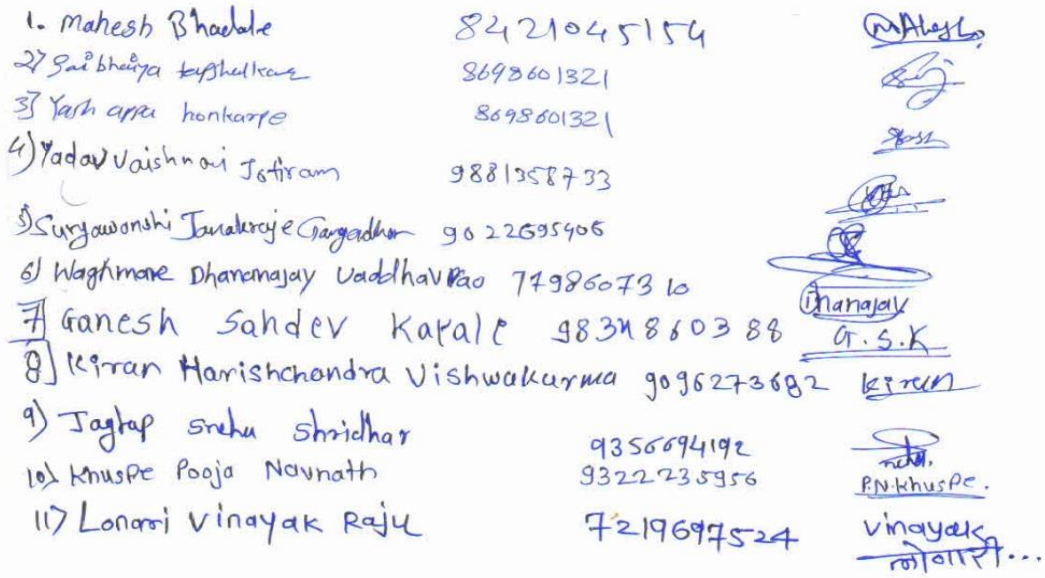 1. Mahesh Bhadale 8421045154 Mahesh
2) Sai bhaiya 8698601321
3] Yash appa honkarpe 8698601321 Yash
4) Yadav Vaishnavi Jotiram 9881358733
5) Suryawanshi Janakraje Gangadhar 9022695406
6) Waghmare Dhananajay Uaddhavrao 7798607310 Dhanajay
7 Ganesh Sahdev Kapale 9834860388 G.S.K
8] Kiran Harishchandra Vishwakarma 9096273682 Kiran
9) Jagtap Sneha Shridhar 9356694192
10) Khuspe Pooja Navnath 9322235956 P.N.Khuspe.
11) Lonari Vinayak Raju 7219697524 Vinayak
लोणारी...